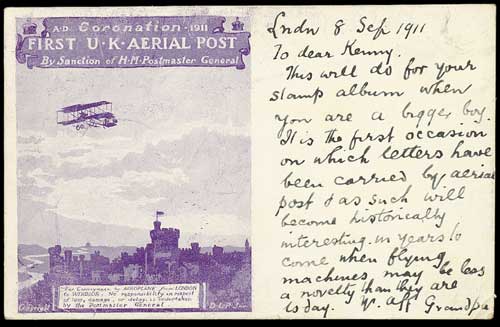 A·D· Coronation ·1911
FIRST U·K·AERIAL POST
By Sanction of H·M·Postmaster General
For Conveyance by AEROPLANE from LONDON
to WINDSOR. No responsibility in respect
of loss, damage, or delay, is undertaken
by the Postmaster General.
Copyright
Lndn 8 Sep 1911
To dear Kenny.
This will do for your
stamp album when
you are a bigger boy.
It is the first occasion
on which letters have
been carried by aerial
post & as such will
become historically
interesting in years to
come when flying
machines may be less
a novelty than they are
today. Yr. aff Grandpa